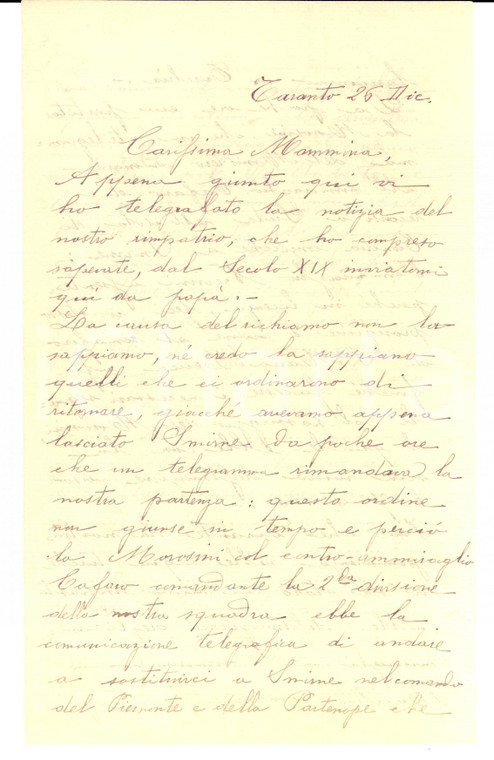 Taranto 26 Dic.
Carissima Mammina,
Appena giunto qui vi
ho telegrafato la notizia del
nostro rimpatrio, che ho compreso
sapevate, dal Secolo XIX inviatomi
qui da papà. -
La causa del richiamo non la
sappiamo, né credo la sappiano
quelli che ci ordinarono di
ritornare, giacché avevamo appena
lasciato Smirne da poche ore
che un telegramma rimandava la
nostra partenza: questo ordine
non giunse in tempo e perciò
la Morosini col contro-ammiraglio
Cafaro comandante la 2ª divisione
della nostra squadra ebbe la
comunicazione telegrafica di andare
a sostituirci a Smirne nel comando
del Piemonte e della Partenope che